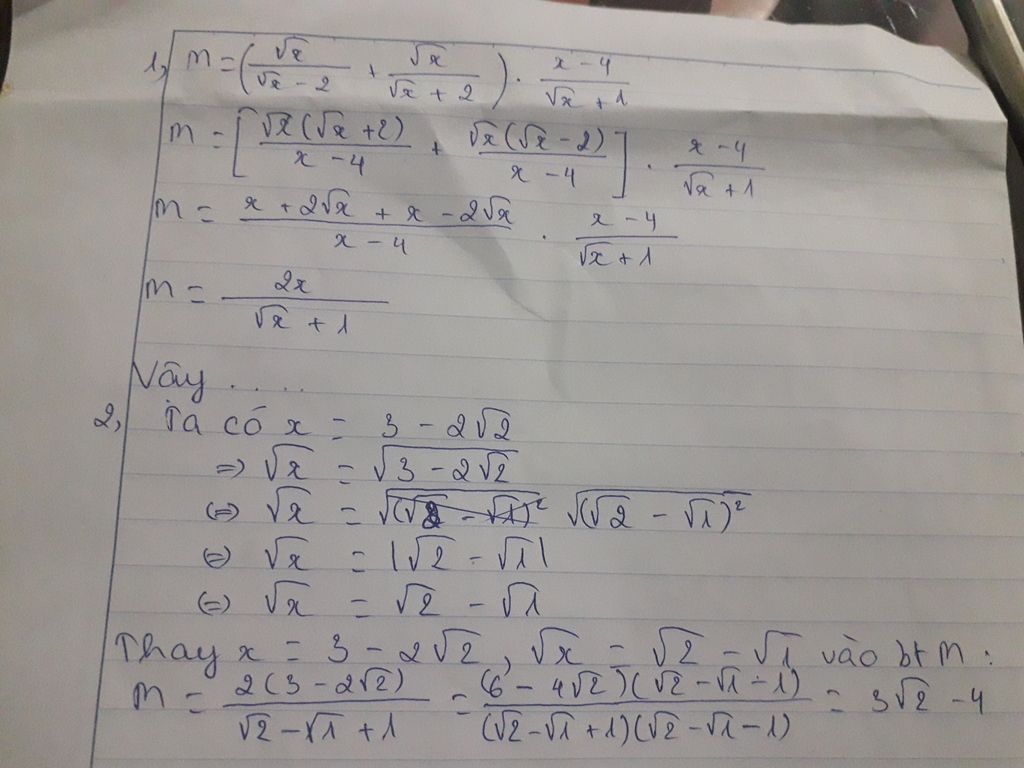 1, M = (√x/(√x - 2) + √x/(√x + 2)) . (x - 4)/(√x + 1)
M = [√x(√x + 2)/(x - 4) + √x(√x - 2)/(x - 4)] . (x - 4)/(√x + 1)
M = (x + 2√x + x - 2√x)/(x - 4) . (x - 4)/(√x + 1)
M = 2x/(√x + 1)
Vậy .....
2, Ta có x = 3 - 2√2
=> √x = √(3 - 2√2)
(=) √x = √((√2 - √1)²)
(=) √x = |√2 - √1|
(=) √x = √2 - √1
Thay x = 3 - 2√2, √x = √2 - √1 vào bt M :
M = 2(3 - 2√2)/(√2 - √1 + 1) = (6 - 4√2)(√2 - √1 - 1)/((√2 - √1 + 1)(√2 - √1 - 1)) = 3√2 - 4